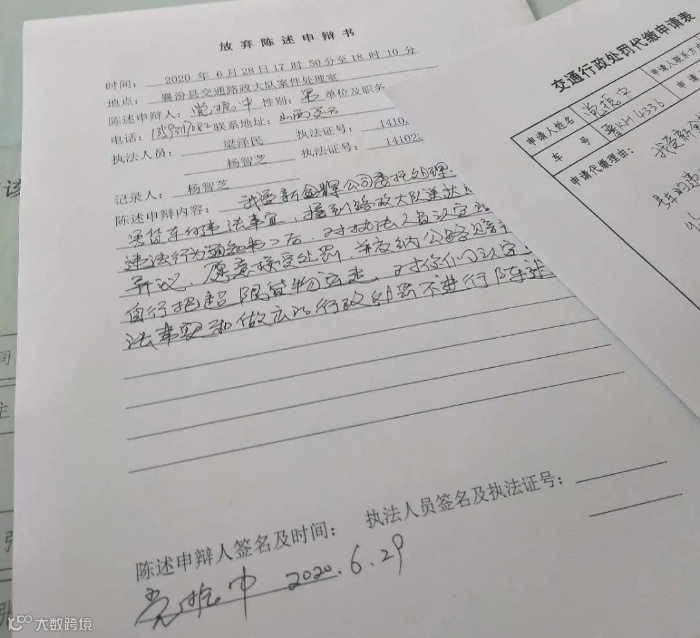 放弃陈述申辩书
时间： 2020 年 6 月 28 日 17 时 50 分至 18 时 10 分
地点： 襄汾县交通路政大队案件处理室
陈述申辩人： 党振中 性别： 男 单位及职务
电话： 联系地址：山西
执法人员： 梁泽民 执法证号： 1410
杨智芝 执法证号： 14102
记录人： 杨智芝
陈述申辩内容： 我受新金辉公司委托处理
货车的违法事宜，接到路政大队送达
违法行为通知书之后，对执法人员认定
异议，愿意接受处罚，并交纳公路
自行把超限货物运走，对你们认定
法事实和做出的行政处罚不进行陈述
陈述申辩人签名及时间： 执法人员签名及执法证号：
党振中 2020.6.29
交通行政处罚代缴申请表
申请人姓名 党振中 申请人联系方
车 号 晋KH4336
申请代缴理由： 我受新
大数跨境